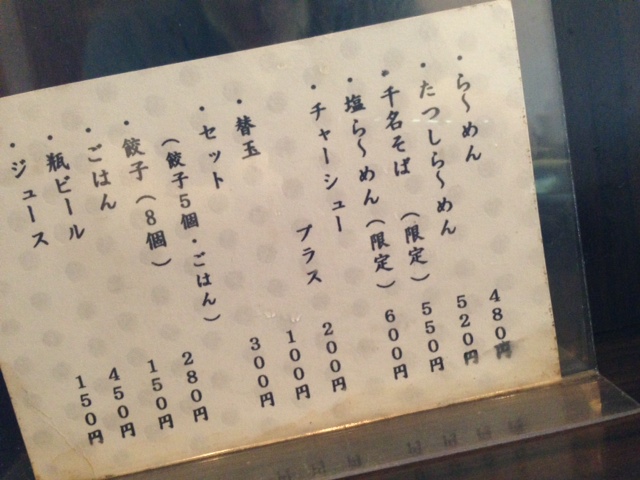 ・ら〜めん 480円
・たつしら〜めん 520円
・千名そば（限定） 550円
・塩ら〜めん（限定） 600円
・チャーシュー プラス 200円
・替玉 100円
・セット
（餃子5個・ごはん） 300円
・餃子（8個） 280円
・ごはん 150円
・瓶ビール 450円
・ジュース 150円